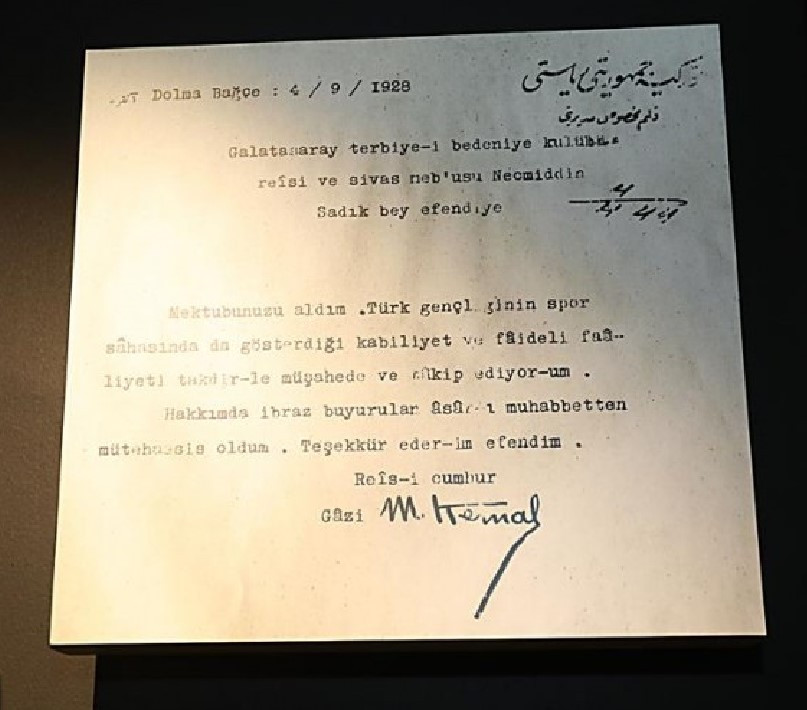 Dolma Bağçe : 4 / 9 / 1928
توركيه جمهوريتى رياستى
قلم مخصوص مديريتى
Galatasaray terbiye-i bedeniye kulübü
reîsi ve sivas meb'usu Necmiddin
Sadık bey efendiye
4
Mektubunuzu aldım .Türk gençliğinin spor
sâhasında da gösterdiği kabiliyet ve fâideli faâ-
liyeti takdir-le müşahede ve tâkip ediyor-um .
Hakkımda ibraz buyurular âsâr-ı muhabbetten
mütehassis oldum . Teşekkür eder-im efendim .
Reîs-i cumhur
Gâzi M. Kemal